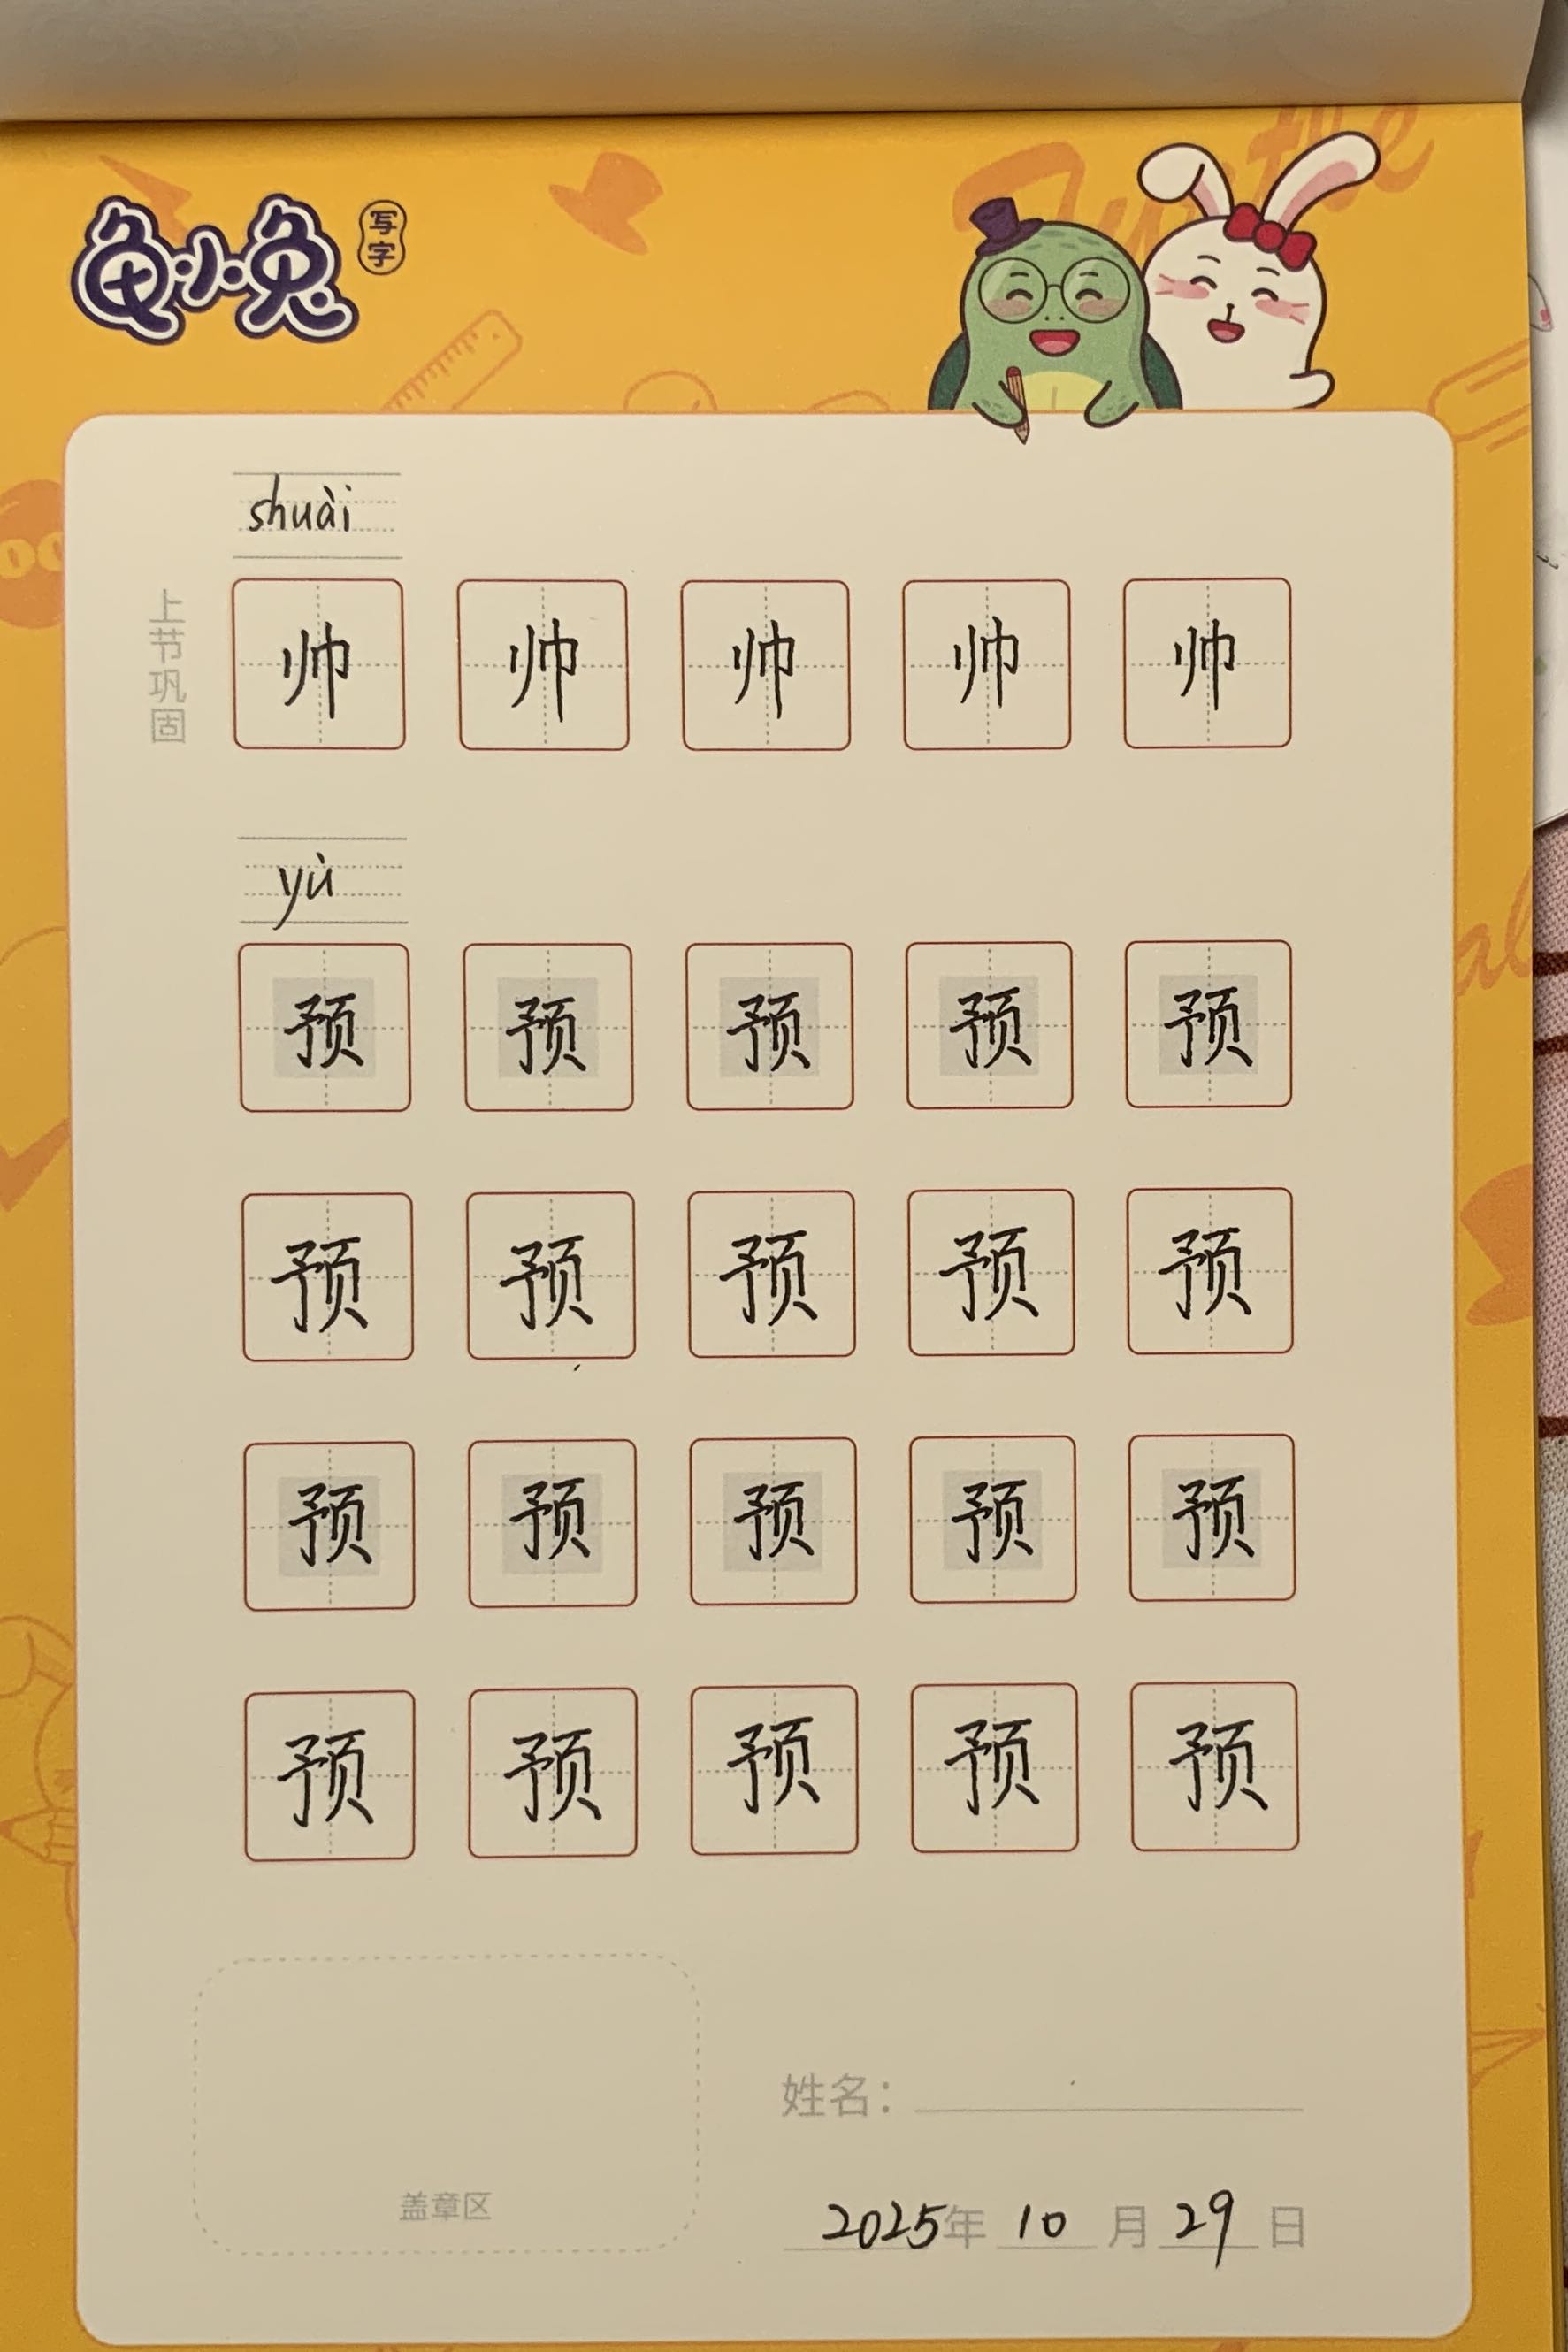 龟小兔 写字
shuài
上节巩固
帅 帅 帅 帅 帅
yù
预 预 预 预 预
预 预 预 预 预
预 预 预 预 预
预 预 预 预 预
姓名：
盖章区
2025年 10 月 29 日